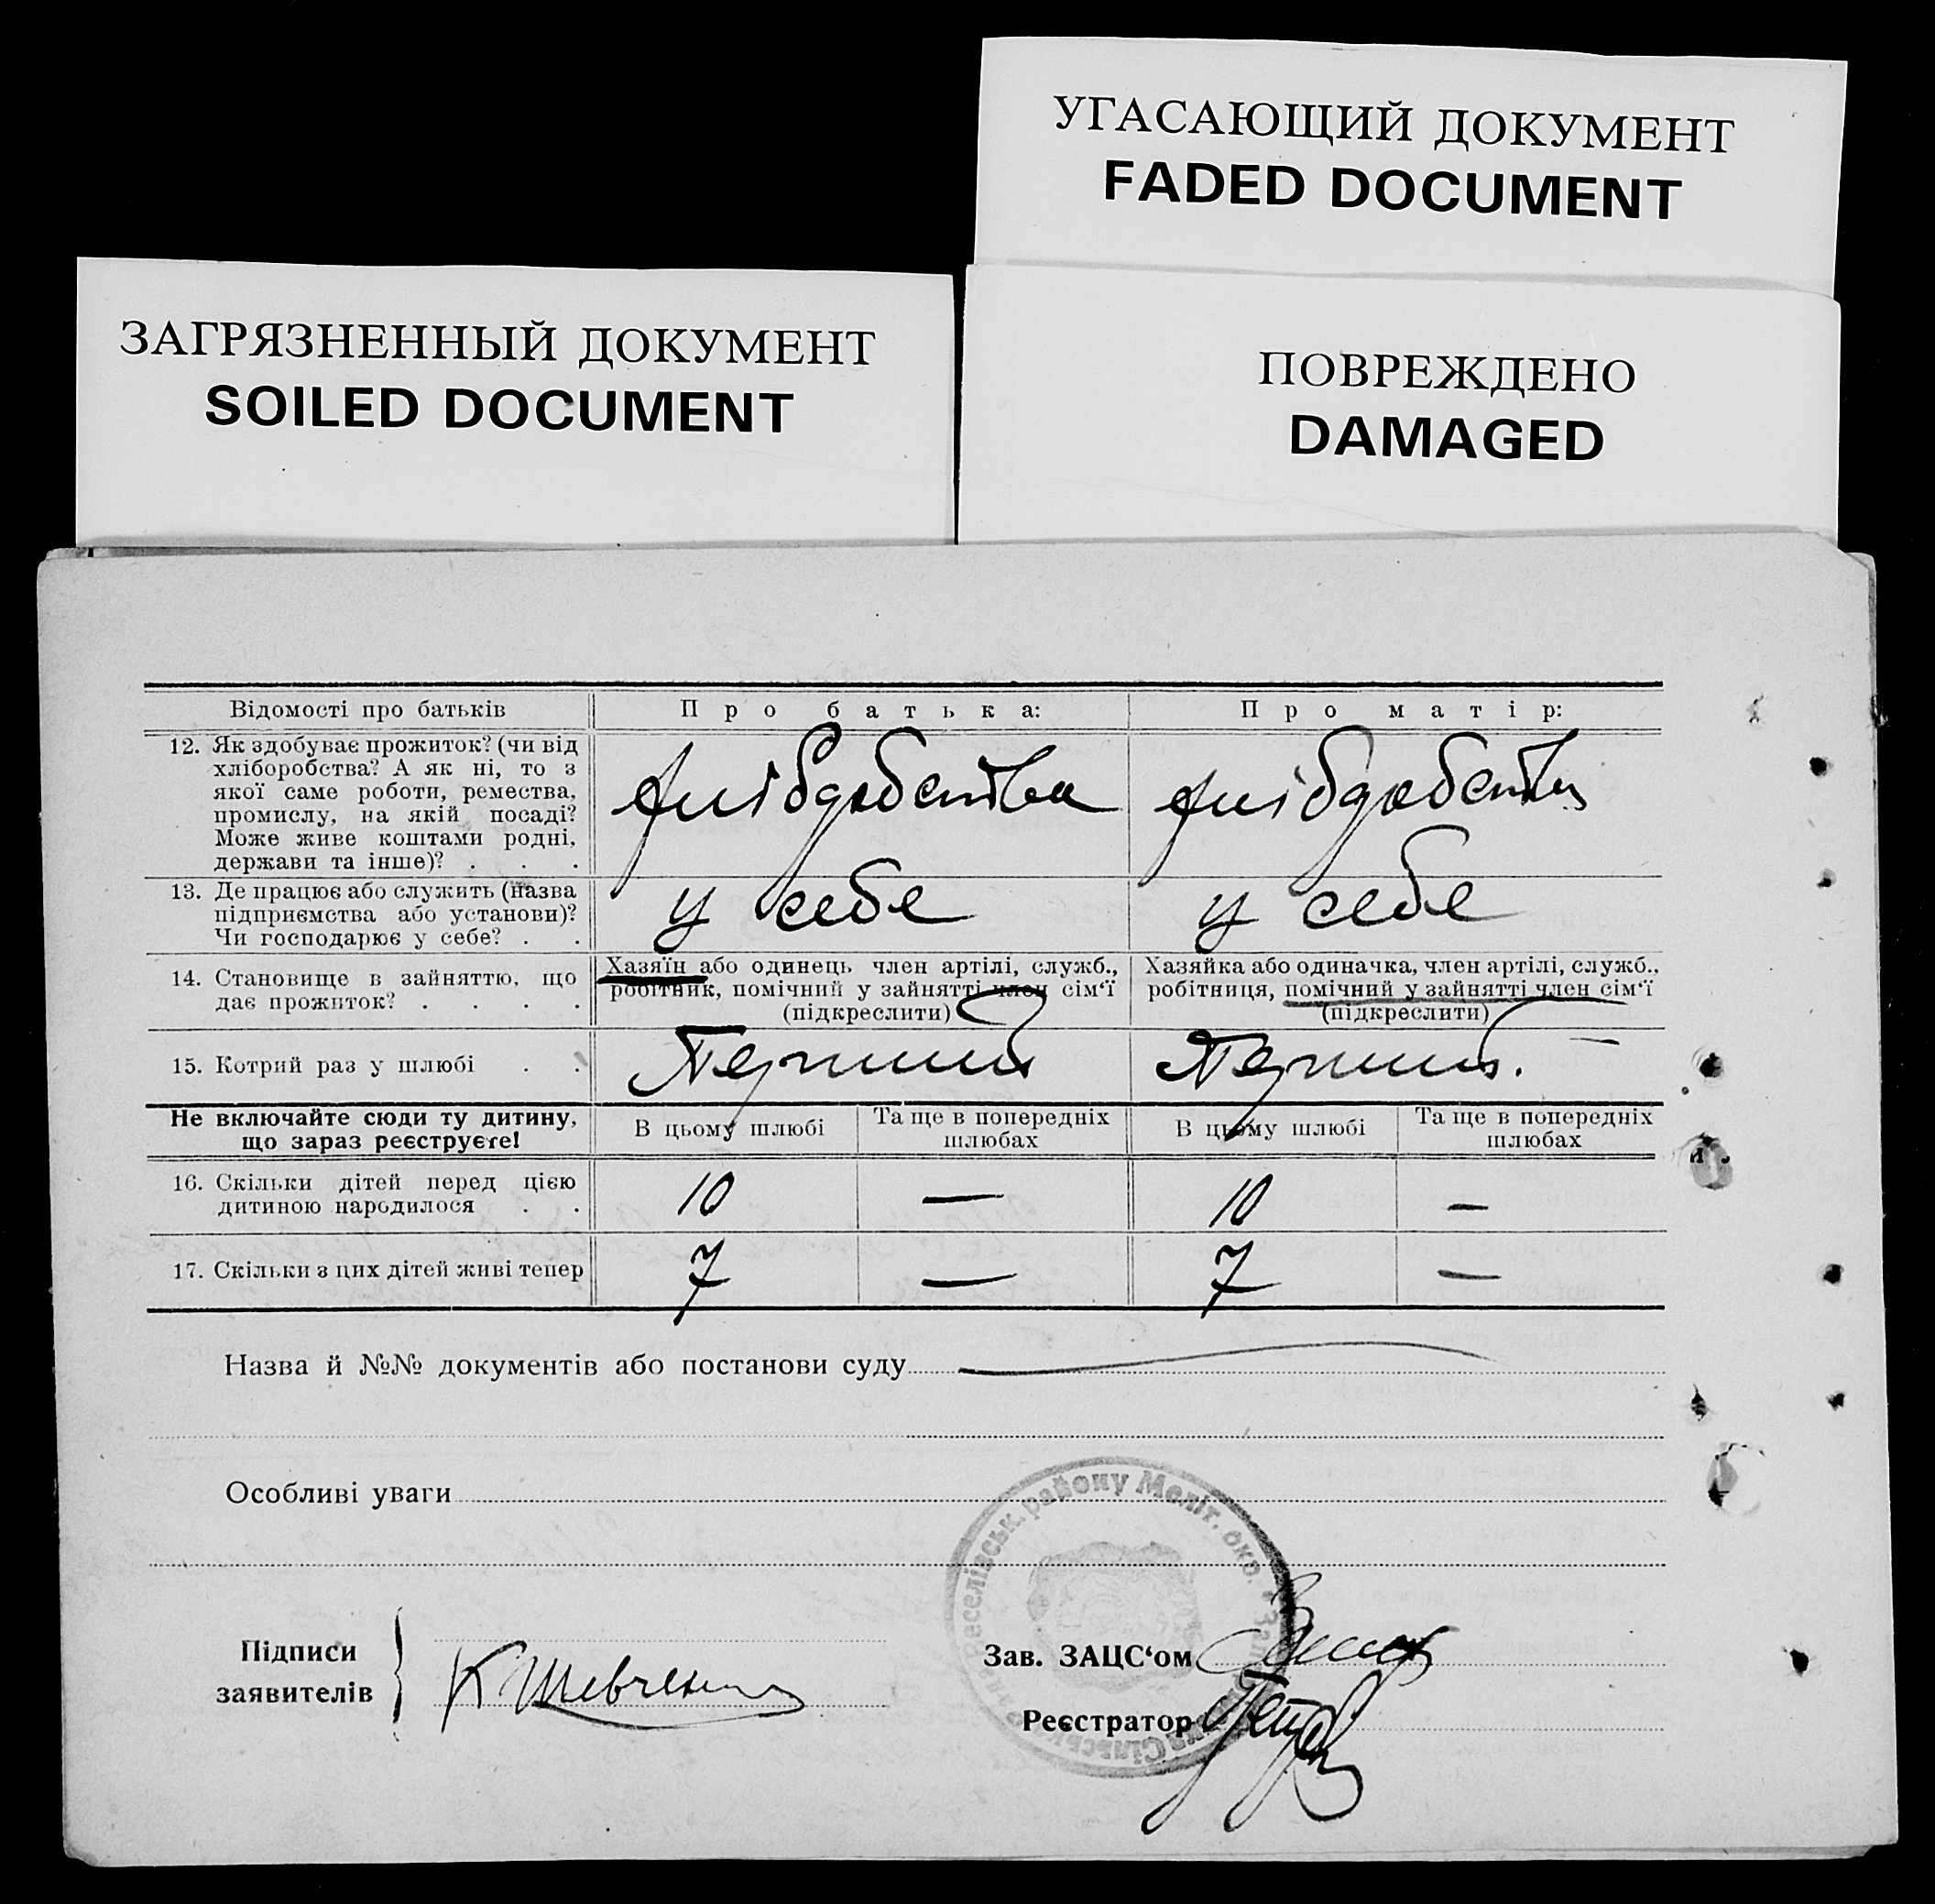 УГАСАЮЩИЙ ДОКУМЕНТ
FADED DOCUMENT
ЗАГРЯЗНЕННЫЙ ДОКУМЕНТ
SOILED DOCUMENT
ПОВРЕЖДЕНО
DAMAGED
Відомості про батьків
Про батька:
Про матір:
12. Як здобуває прожиток? (чи від
хліборобства? А як ні, то з
якої саме роботи, ремества,
промислу, на якій посаді?
Може живе коштами родні,
держави та інше)? . . .
13. Де працює або служить (назва
підприємства або установи)?
Чи господарює у себе? . .
у себе
у себе
14. Становище в зайняттю, що
дає прожиток? . . . .
Хазяїн або одинець член артілі, служб.,
робітник, помічний у зайнятті член сім‘ї
(підкреслити)
Хазяйка або одиначка, член артілі, служб.,
робітниця, помічний у зайнятті член сім‘ї
(підкреслити)
15. Котрий раз у шлюбі . .
Перший
Перший.
Не включайте сюди ту дитину,
що зараз реєструєте!
В цьому шлюбі
Та ще в попередніх
шлюбах
В цьому шлюбі
Та ще в попередніх
шлюбах
16. Скільки дітей перед цією
дитиною народилося . .
10
—
10
—
17. Скільки з цих дітей живі тепер
7
—
7
—
Назва й №№ документів або постанови суду
Особливі уваги
району Меліт. окр.
Підписи
заявителів
К Шевченко
Зав. ЗАЦС‘ом
Реєстратор